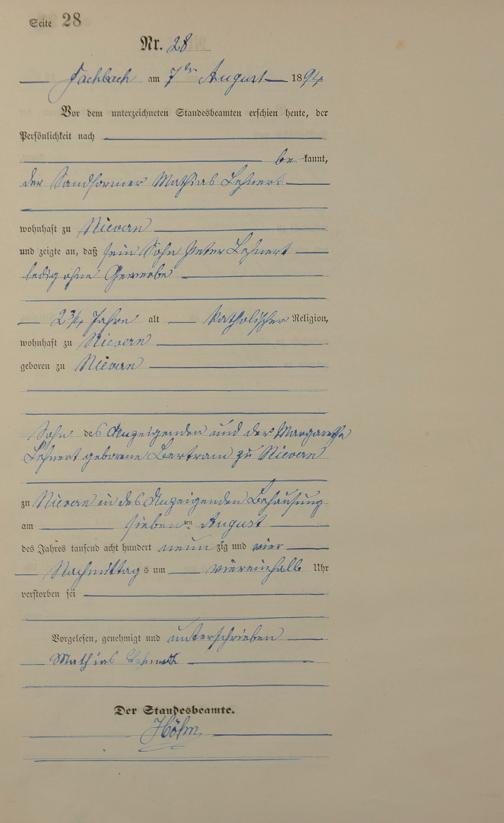 Seite 28
Nr. 28
Fachbach am 7ten August 1894
Vor dem unterzeichneten Standesbeamten erschien heute, der
Persönlichkeit nach
be kannt,
der Sandformer Mathias Lehnert
wohnhaft zu Nievern
und zeigte an, daß sein Sohn Peter Lehnert
ledig ohne Gewerbe
23¾ Jahre alt katholischer Religion,
wohnhaft zu Nievern
geboren zu Nievern
Sohn des Anzeigenden und der Margarethe
Lehnert geborene Bertram zu Nievern
zu Nievern in des Anzeigenden Behausung
am siebenten August
des Jahres tausend acht hundert neun zig und vier
Nachmittag s um viereinhalb Uhr
verstorben sei
Vorgelesen, genehmigt und unterschrieben
Mathias Lehnert
Der Standesbeamte.